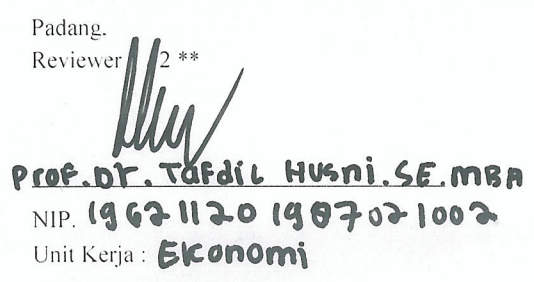 Padang.
Reviewer 2 **
Prof.Dr. Tafdil Husni.SE.MBA
NIP. 19621120 198702 1002
Unit Kerja : Ekonomi